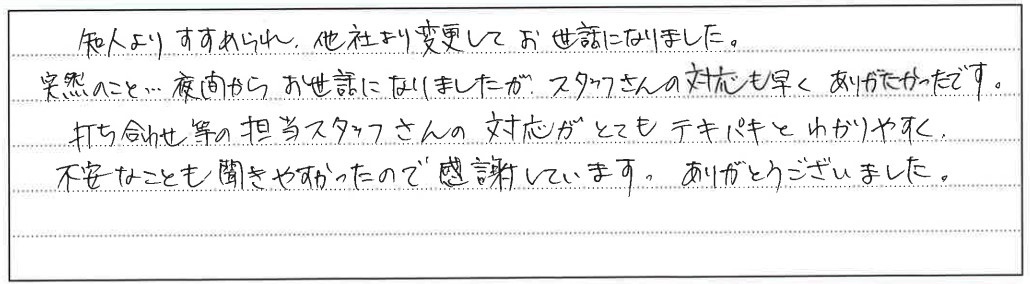 知人よりすすめられ、他社より変更してお世話になりました。
突然のこと…夜間からお世話になりましたが、スタッフさんの対応も早くありがたかったです。
打ち合わせ等の担当スタッフさんの対応がとてもテキパキとわかりやすく、
不安なことも聞きやすかったので感謝しています。ありがとうございました。